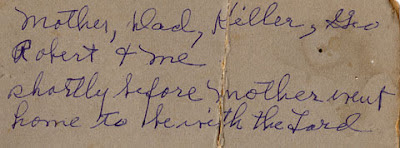 Mother, Dad, Hiller, Geo
Robert & me
shortly before Mother went
home to be with the Lord